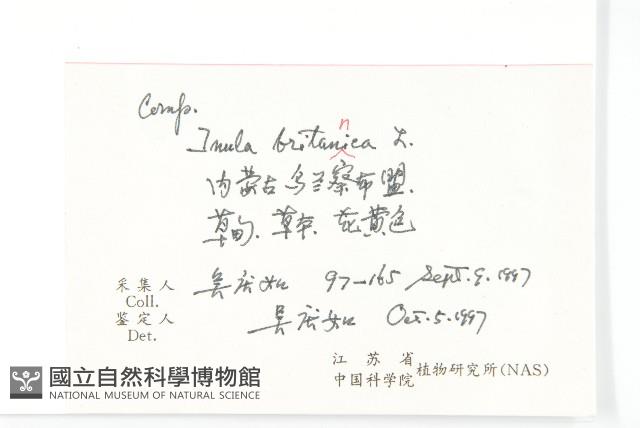 Comp.
n
Inula britanica L.
内蒙古乌兰察布盟.
草甸. 草本. 花黄色
采集人 吴庆如 97-165 Sept. 9. 1997
Coll.
鉴定人 吴庆如 Oct. 5. 1997
Det.
江苏省
中国科学院植物研究所(NAS)
國立自然科學博物館
NATIONAL MUSEUM OF NATURAL SCIENCE